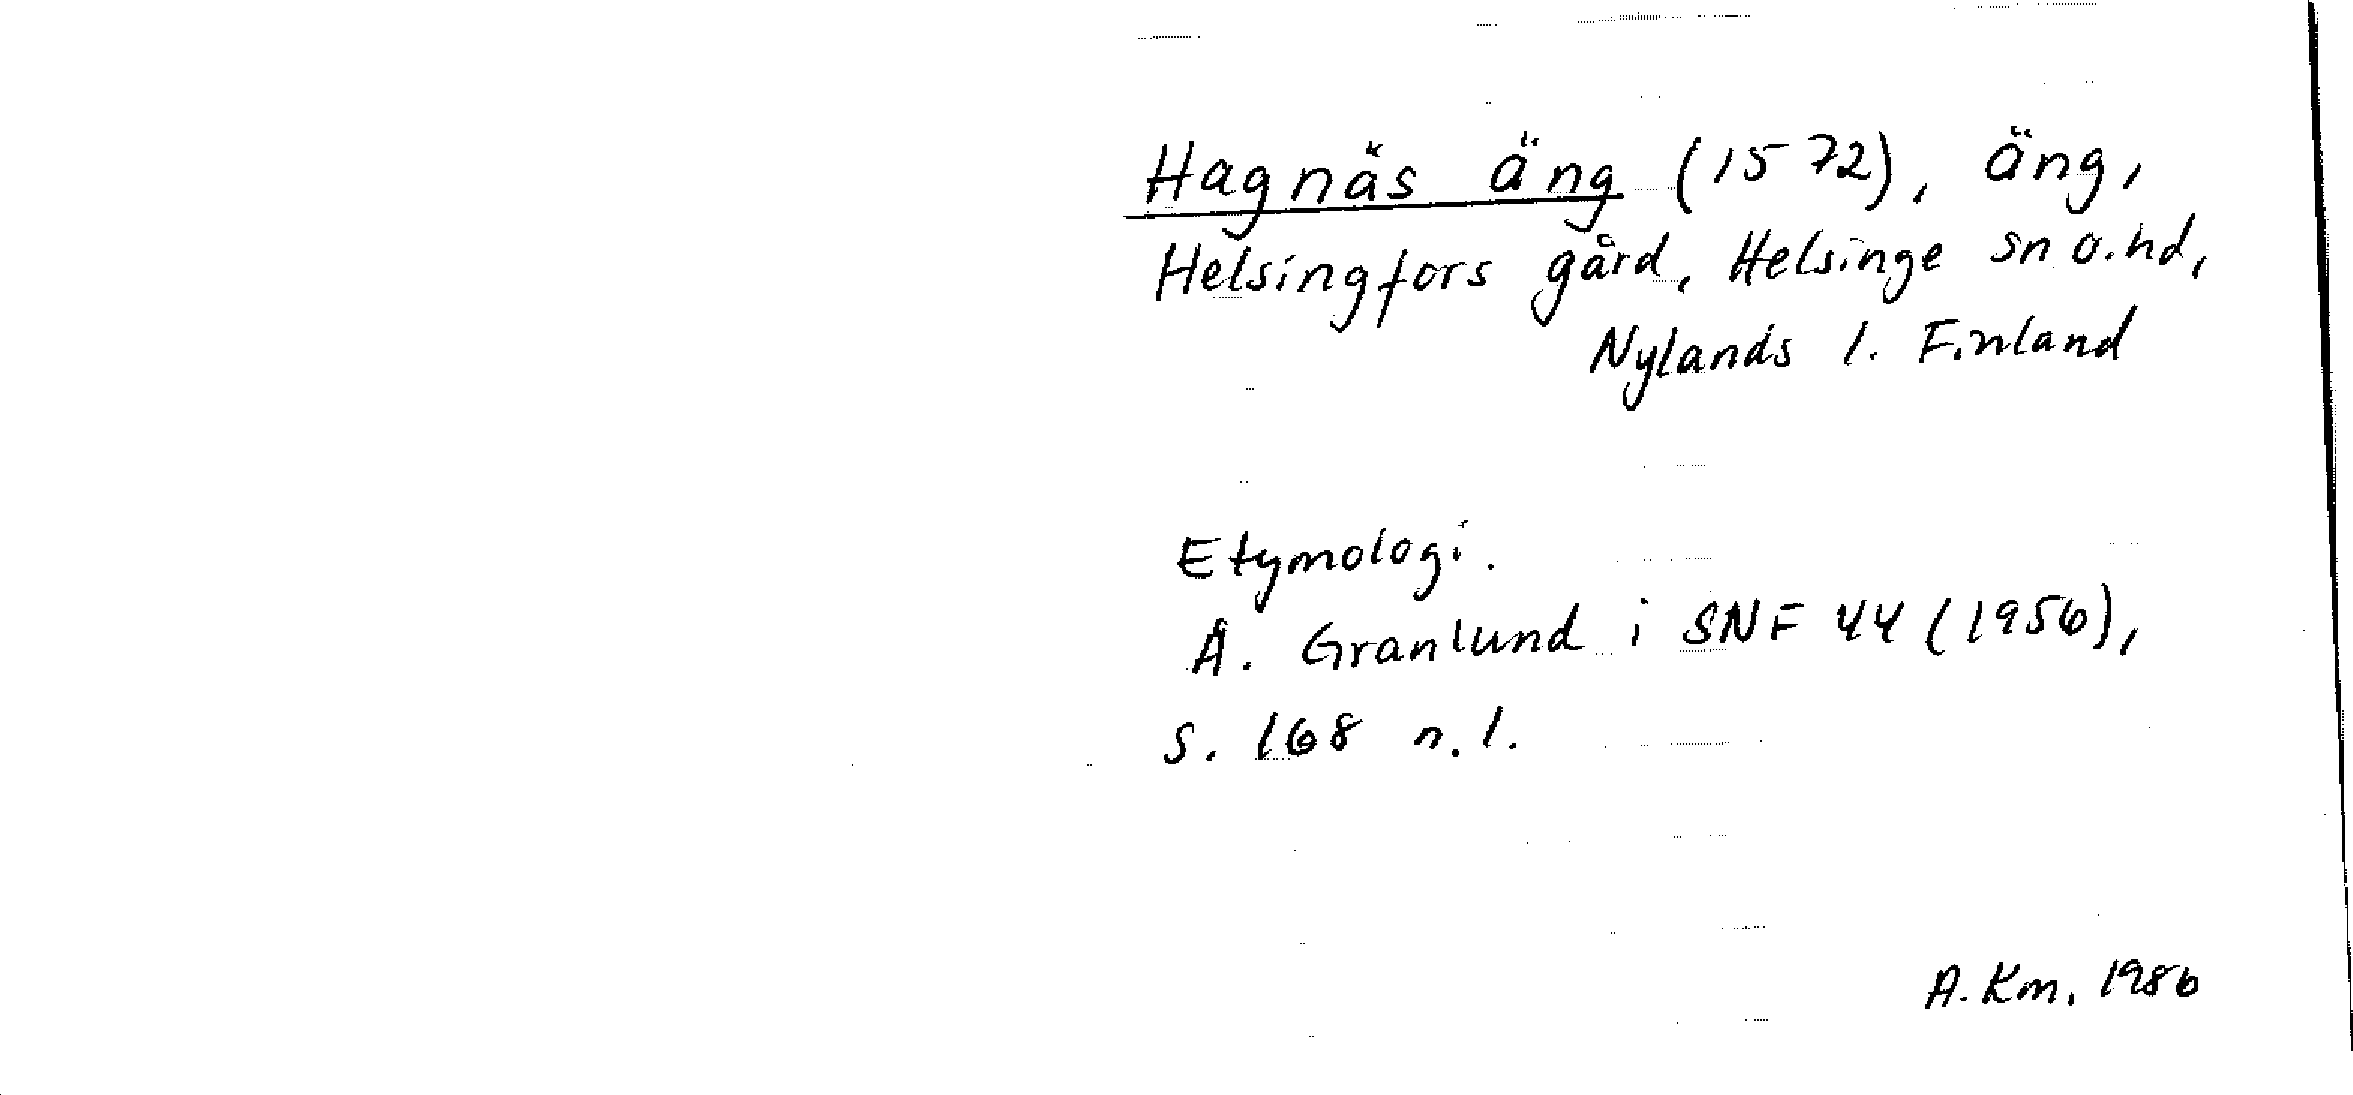 Hagnäs äng (1572), äng,
Helsingfors gård, Helsinge sn o. hd,
Nylands l. Finland
Etymologi.
Å. Granlund i SNF 44 (1956),
s. 168 n. 1.
A. Km. 1986